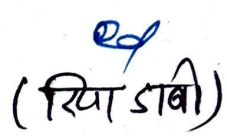 (रिया डाबी)